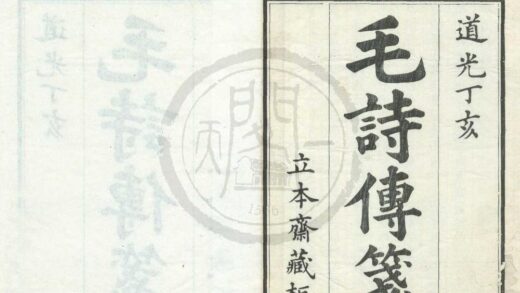 道光丁亥
毛詩傳箋
立本齋藏板